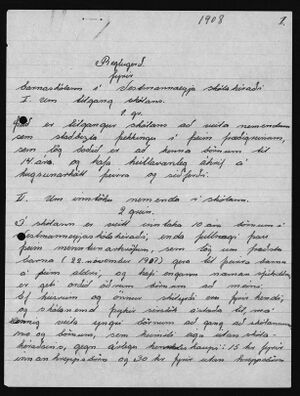 1908
1.
Reglugerð
fyrir
barnaskólann í Vestmannaeyja skólahéraði
I. Um tilgang skólans.
1. gr.
Það er tilgangur skólans að veita nemendum
sem staðbezta þekkingu í þeim fræðigreinum,
sem lög boðið er að kenna börnum til
14 ára, og hafa hollvænleg áhrif á
hugsunarhátt þeirra og siðferði.
II. Um inntöku nemenda í skólann.
2. grein.
Í skólann er veitt inntaka 10 ára börnum í
Vestmannaeyjaskólahéraði, enda fullnægi þau
þeim menntunarskilyrðum, sem lög um fræðslu
barna (22. nóvember 1907) gera til þeirra barna
á þeim aldri, og hafi engann næman sjúkdóm
er geti orðið öðrum börnum að meini.
Ef húsrúm og önnur skilyrði eru fyrir hendi,
og skólanefnd þykir sérstök ástæða til, má
einnig veita yngri börnum að gang að skólanum
svo og börnum, sem heimili eiga utan skóla-
héraðsins, gegn árlegu kennslukaupi: 15 kr. fyrir
innanhreppsbörn og 30 kr. fyrir utanhreppsbörn